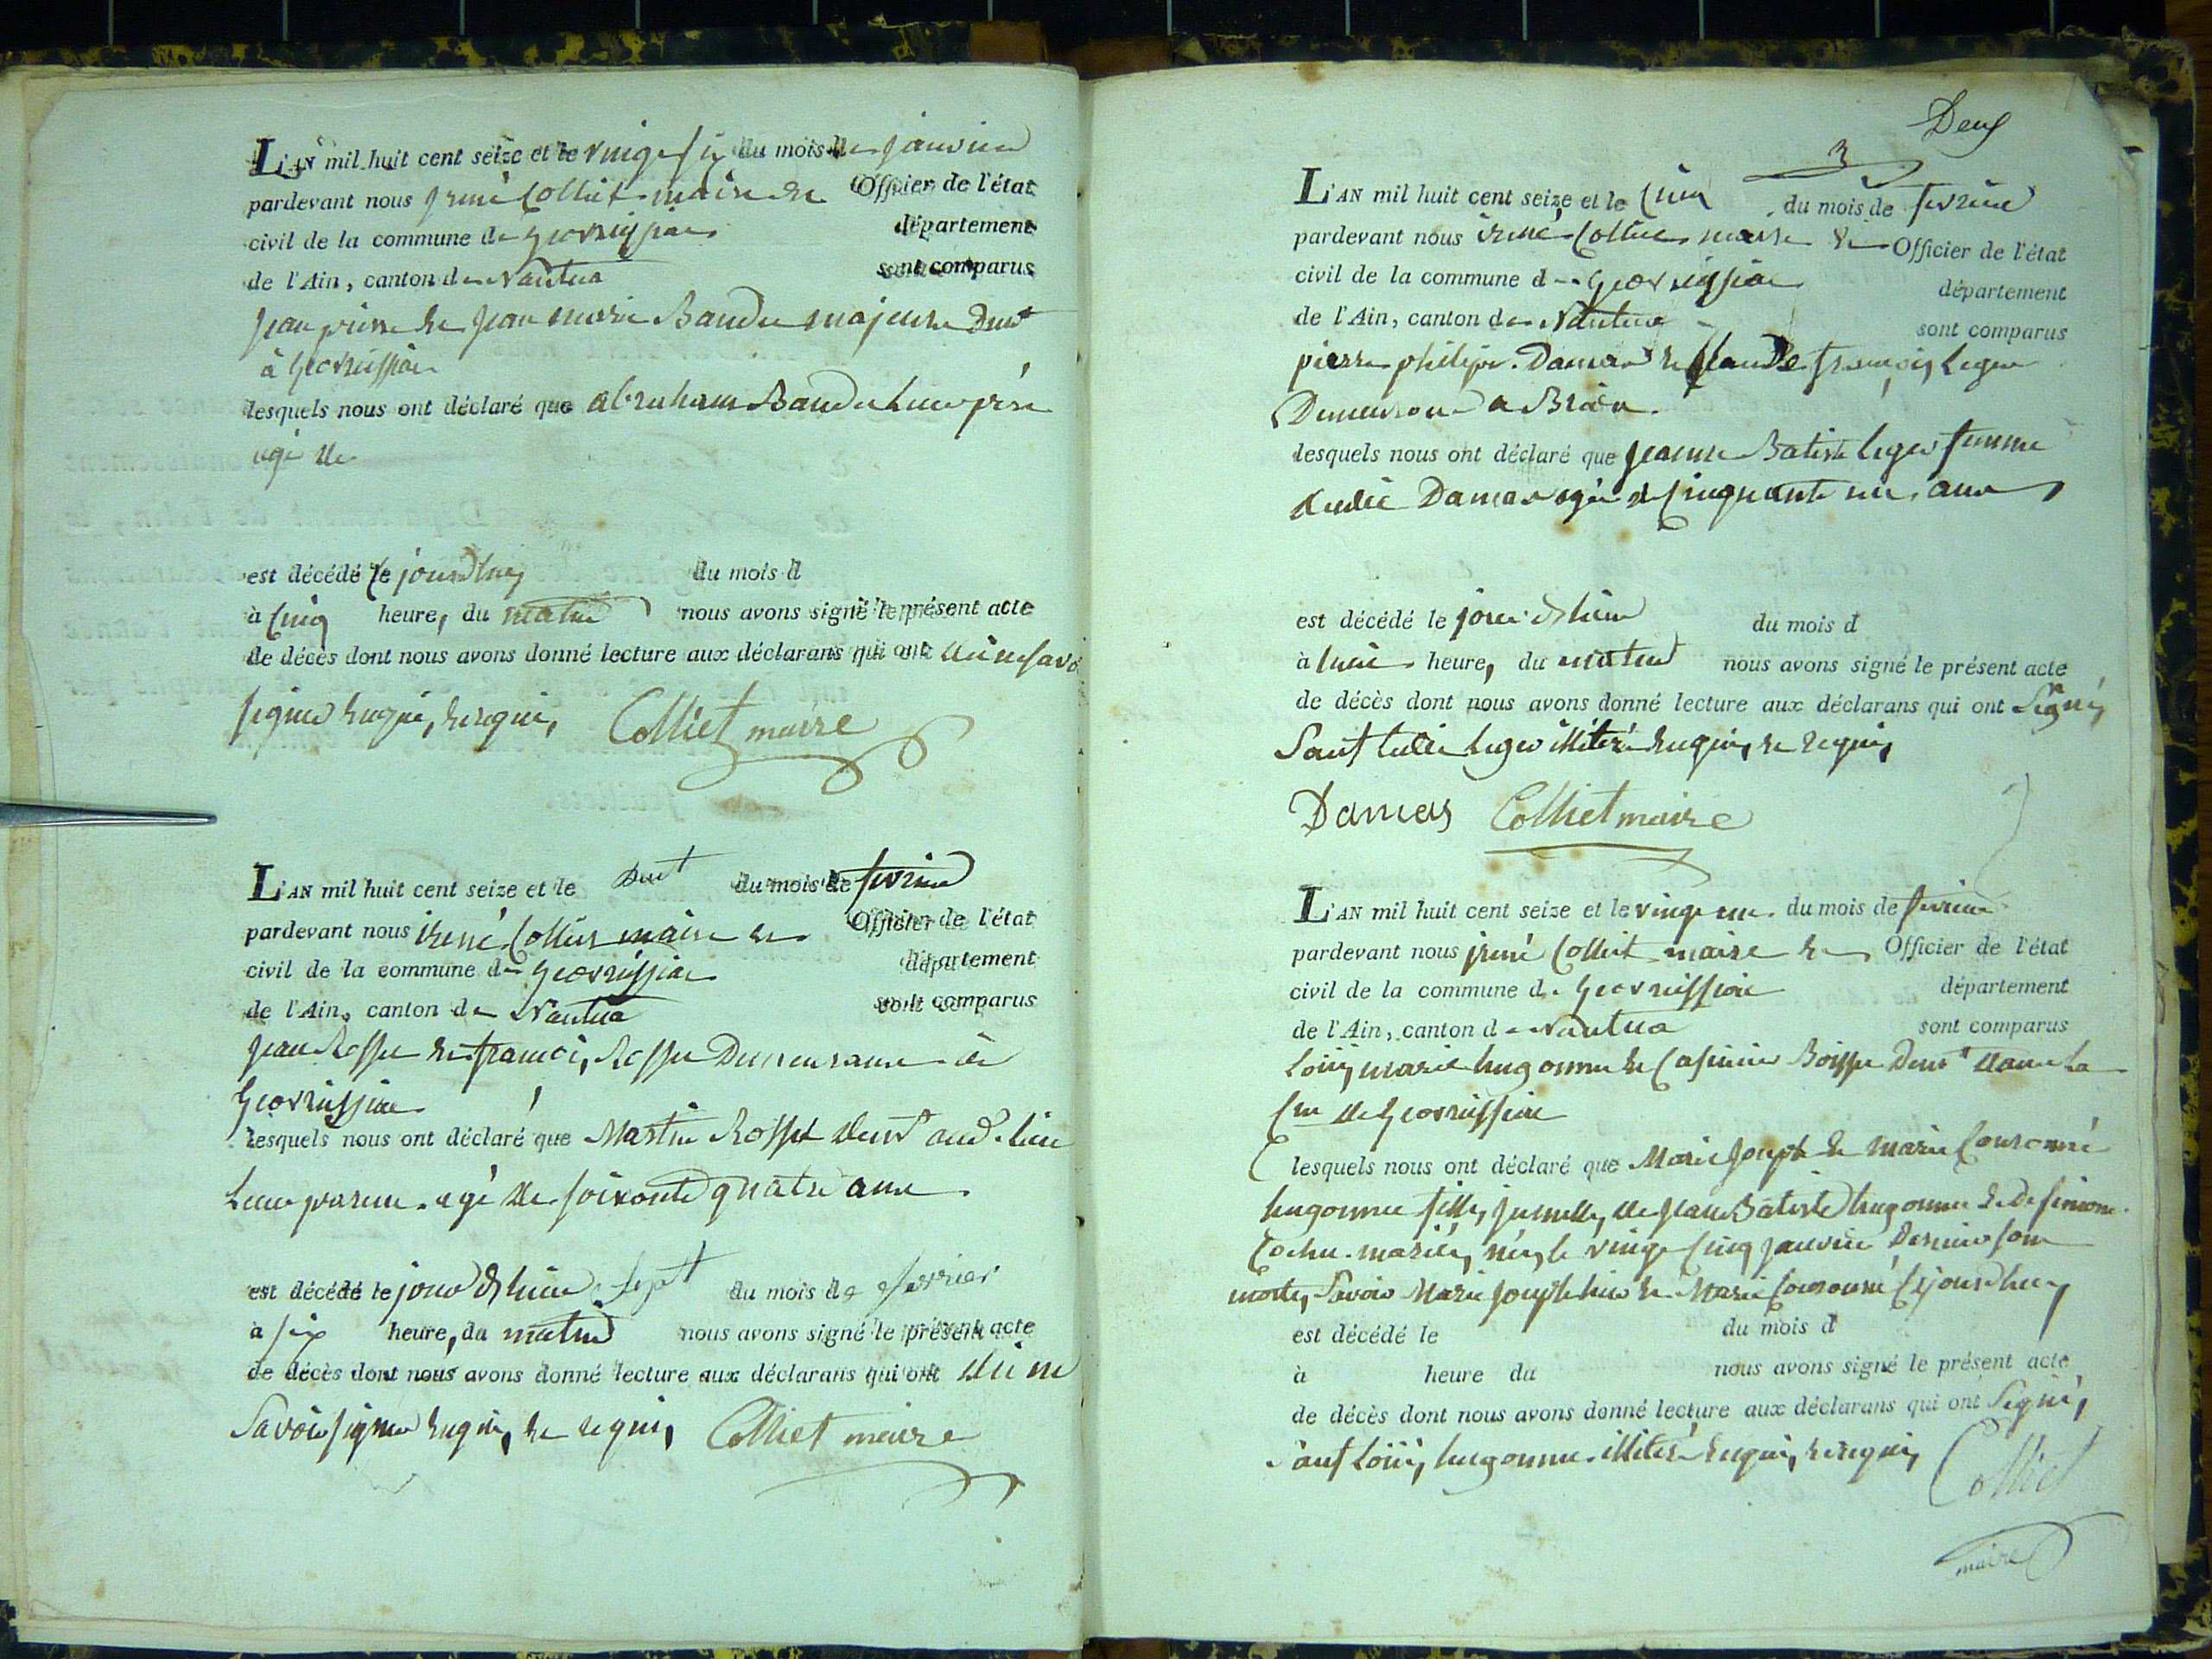 L'AN mil huit cent seize et le vingt six du mois de janvier
pardevant nous jrené Colliet maire de Officier de l'état
civil de la commune de Geovreissiat département
de l'Ain, canton de Nantua sont comparus
jean pierre et jean marie Baudu majeurs Demt
à Geovreissiat
lesquels nous ont déclaré que abraham Baudu leur père
agé de
est décédé ce jourdhuy du mois d
à Cinq heure, du matin nous avons signé le présent acte
de décès dont nous avons donné lecture aux déclarans qui ont dit ne savoir
signer enquis, requis, Colliet maire
L'AN mil huit cent seize et le Sept du mois de fevrier
pardevant nous irené Colliet maire de Officier de l'état
civil de la commune de Geovreissiat département
de l'Ain, canton de Nantua sont comparus
jean Rosset et françois Rosset Demeurant à
Geovreissiat
lesquels nous ont déclaré que Martin Rosset demt aud. lieu
leur parent agé de soixante quatre ans
est décédé le jour d'hier Sept du mois de fevrier
à six heure, du matin nous avons signé le présent acte
de décès dont nous avons donné lecture aux déclarans qui ont dit ne
Savoir signer enquis, de requis, Colliet maire
Deux
3
L'AN mil huit cent seize et le Cinq du mois de fevrier
pardevant nous irené Colliet maire de Officier de l'état
civil de la commune d Geovreissiat département
de l'Ain, canton de Nantua sont comparus
pierre philipe Damas et Claude françois Leger
Demeurant a Brion
lesquels nous ont déclaré que jeanne Batiste Leger femme
dudit Damas agée de Cinquante un ans
est décédé le jour d'hier du mois d
à huit heure, du matin nous avons signé le présent acte
de décès dont nous avons donné lecture aux déclarans qui ont Signé,
Sauf ledit Leger illiteré enquis, de requis,
Damas Colliet maire
L'AN mil huit cent seize et le vingt un du mois de fevrier
pardevant nous jrené Colliet maire de Officier de l'état
civil de la commune d Geovreissiat département
de l'Ain, canton d Nantua sont comparus
Loüis marie hugonnet et Casimir Boisset Demt dans la
Cne de Geovreissiat
lesquels nous ont déclaré que Marie joseph et marie Couronné
hugonnet filles jumelles de jean Batiste hugonnet et de
Cochet mariés, nées le vingt Cinq janvier Dernier sont
mortes, Savoir Marie joseph hier et Marie Couronné Cejourdhuy
est décédé le du mois d
à heure du nous avons signé le présent acte
de décès dont nous avons donné lecture aux déclarans qui ont Signé,
Sauf Loüis hugonnet illiteré enquis, requis, Colliet
maire